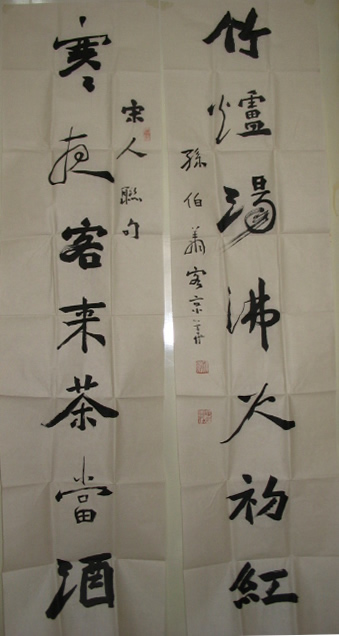 竹爐湯沸火初紅
孫伯 客京
宋人聯句
寒夜客来茶當酒